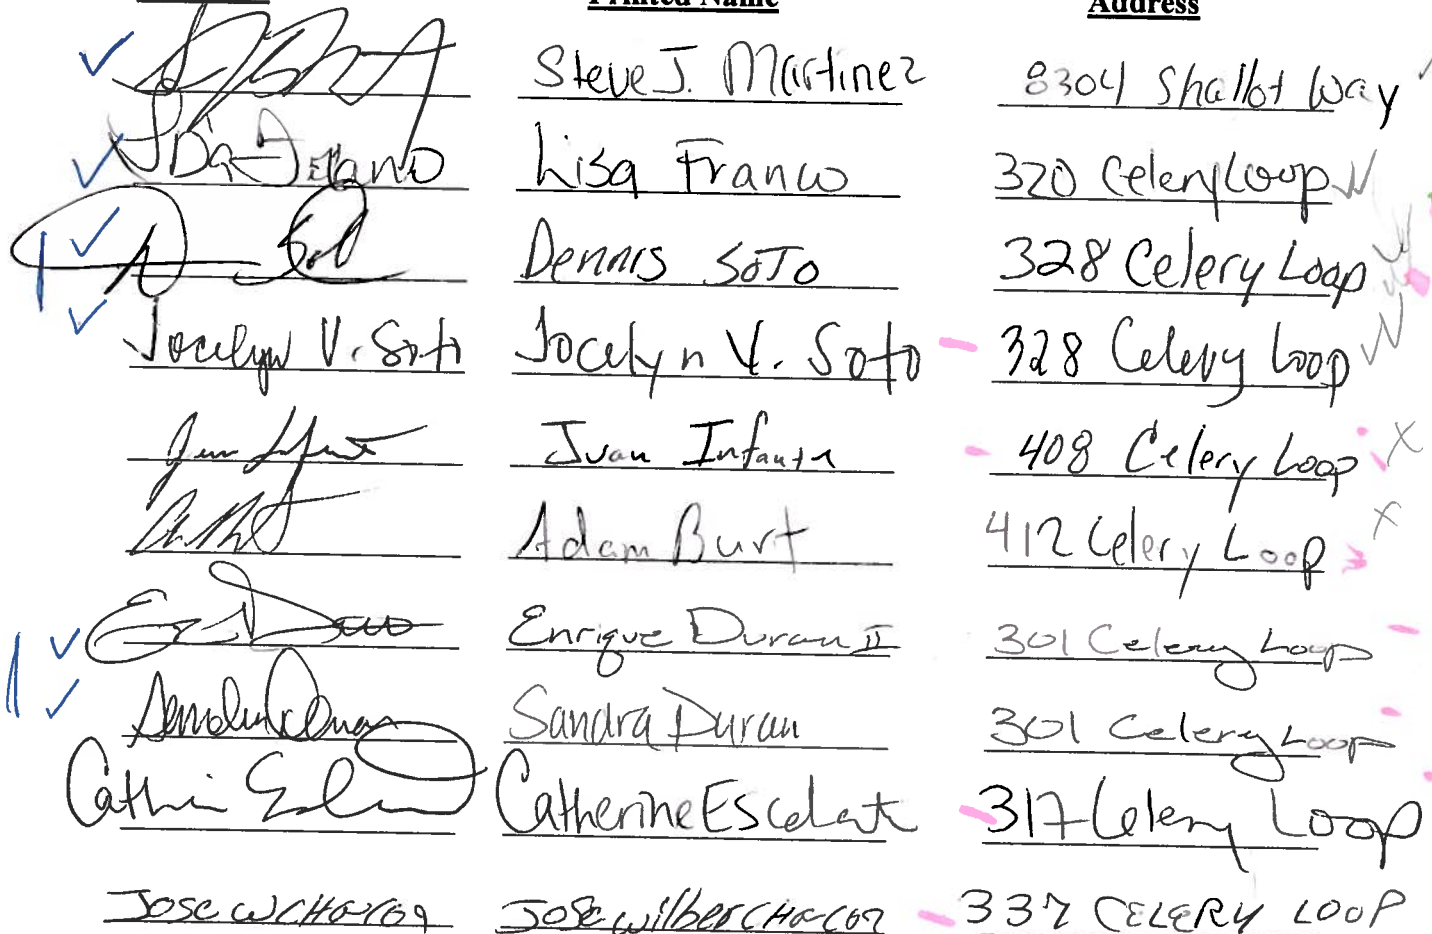 Printed Name Address
Steve J. Martinez 8304 Shallot Way
Lisa Franco Lisa Franco 320 Celery Loop
Dennis Soto 328 Celery Loop
Jocelyn V. Soto Jocelyn V. Soto 328 Celery Loop
Juan Infante 408 Celery Loop
Adam Burt 412 Celery Loop
Enrique Duran II 301 Celery Loop
Sandra Duran 301 Celery Loop
Catherine Escalante 317 Celery Loop
Jose Jose Wilber 337 CELERY LOOP